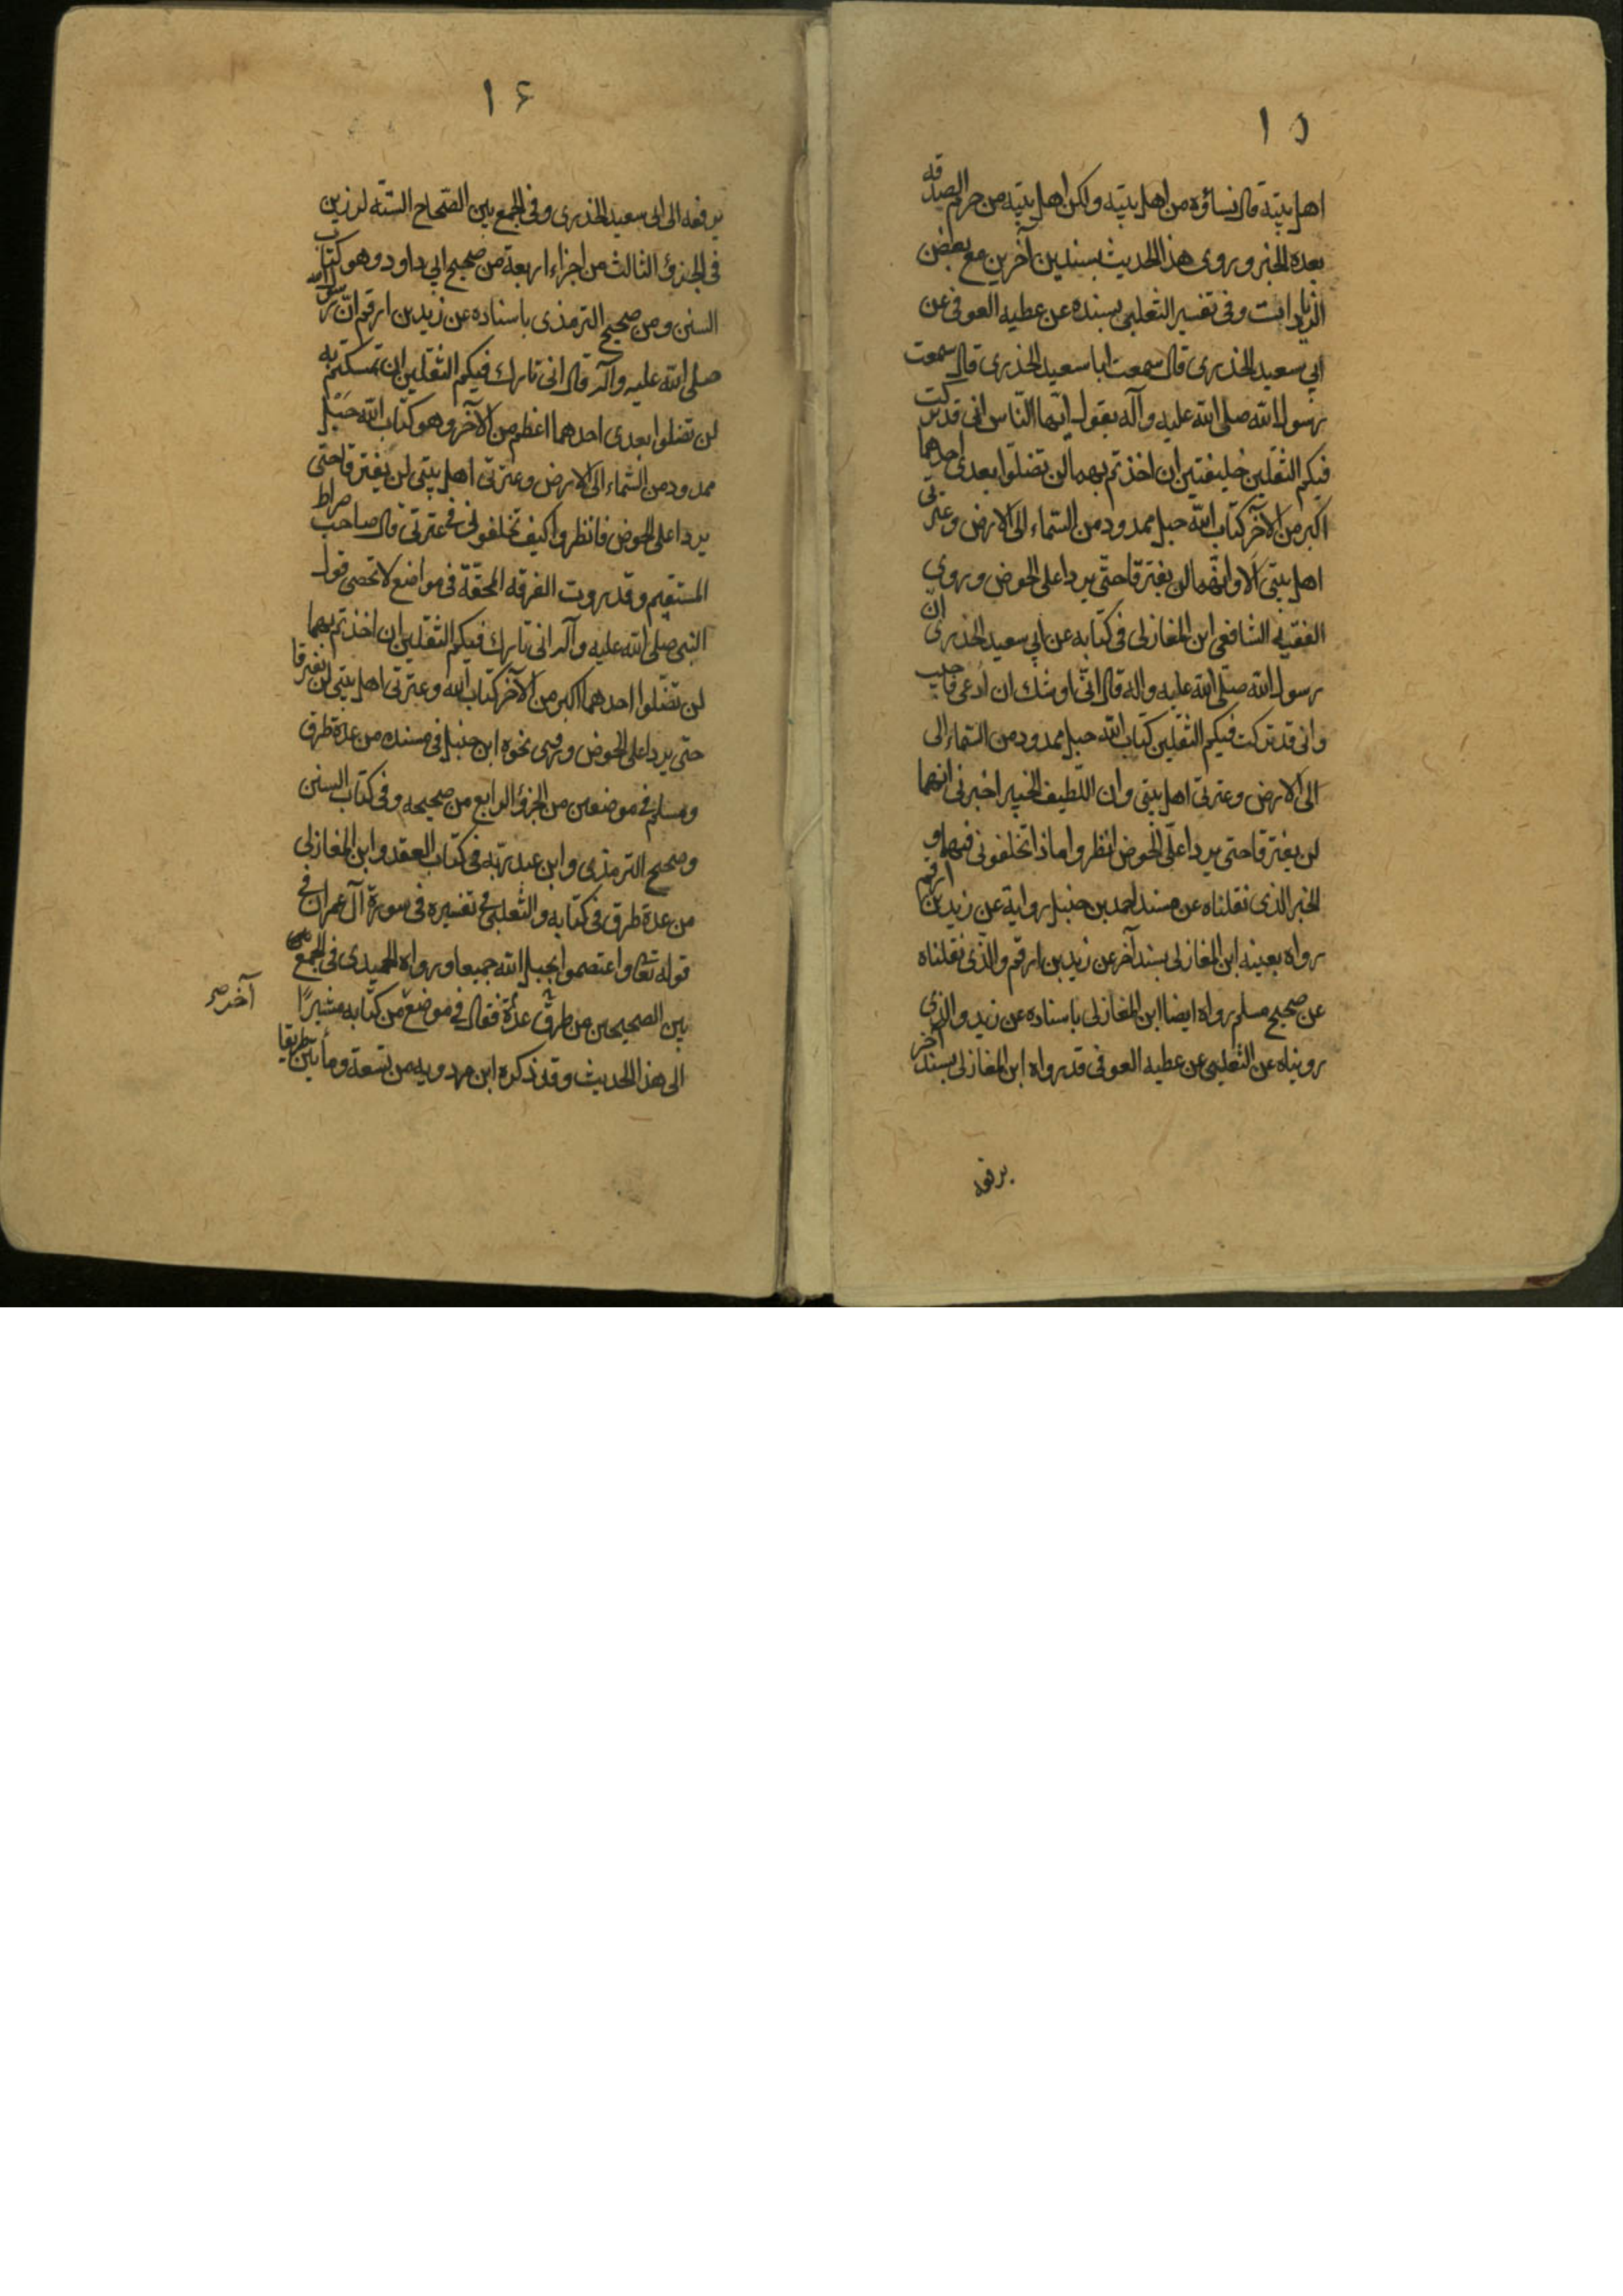 ١٥
اهل بيته قال نساؤه من اهل بيته ولكن اهل بيته من حرم الصدقه
بعده الخبر وروى هذا الحديث بسندين آخرين مع بعض
الزيادات وفى تفسير الثعلبى بسنده عن عطيه العوفى عن
ابي سعيد الخدرى قال سمعت ابا سعيد الخدرى قال سمعت
رسول الله صلى الله عليه وآله يقول ايها الناس انى قد تركت
فيكم الثقلين خليفتين ان اخذتم بهما لن تضلوا بعدى احدهما
اكبر من الآخر كتاب الله حبل ممدود من السماء الى الارض وعترتى
اهل بيتى الا وانهما لن يفترقا حتى يردا على الحوض وروى
الفقيه الشافعى ابن المغازلى فى كتابه عن ابي سعيد الخدرى ان
رسول الله صلى الله عليه واله قال انى اوشك ان ادعى فاجيب
وانى قد تركت فيكم الثقلين كتاب الله حبل ممدود من السماء الى
الى الارض وعترتى اهل بيتى وان اللطيف الخبير اخبرنى انهما
لن يفترقا حتى يردا على الحوض انظروا ماذا تخلفونى فيهما و
الخبر الذى نقلناه عن مسند احمد بن حنبل رواية عن زيد بن ارقم
رواه بعينه ابن المغازلى بسند آخر عن زيد بن ارقم والذى نقلناه
عن صحيح مسلم رواه ايضا ابن المغازلى باسناده عن زيد والذى
رويناه عن الثعلبى عن عطيه العوفى قد رواه ابن المغازلى بسند آخر
يرفعه
١٦
يرفعه الى ابى سعيد الخدرى وفى الجمع بين الصحاح الستة لرزين
فى الجزؤ الثالث من اجزاء اربعة من صحيح ابي داود وهو كتاب
السنن ومن صحيح الترمذى باسناده عن زيد بن ارقم ان رسول الله
صلى الله عليه وآله قال انى تارك فيكم الثقلين ان تمسكتم به
لن تضلوا بعدى احدهما اعظم من الآخر وهو كتاب الله حبل
ممدود من السماء الى الارض وعترتى اهل بيتى لن يفترقا حتى
يردا على الحوض فانظروا كيف تخلفونى فى عترتى قال صاحب صراط
المستقيم وقد روت الفرقه المحقة فى مواضع لا تحصى قول
النبى صلى الله عليه وآله انى تارك فيكم الثقلين ان اخذتم بهما
لن تضلوا احدهما اكبر من الآخر كتاب الله وعترتى اهل بيتى لن يفترقا
حتى يردا على الحوض وروى نحوه ابن حنبل فى مسنده من عدة طرق
ومسلم فى موضعين من الجزؤ الرابع من صحيحه وفى كتاب السنن
وصحيح الترمذى وابن عبد ربه فى كتاب العقد وابن المغازلى
من عدة طرق فى كتابه والثعلبى فى تفسيره فى سورة آل عمران فى
قوله تعا واعتصموا بحبل الله جميعا ورواه الحميدى فى الجمع
بين الصحيحين من طرق عدة فقال فى موضع من كتابه مشيرًا
آخر صح
الى هذا الحديث وقد ذكره ابن مردويه من تسعة ومأتين طريقا